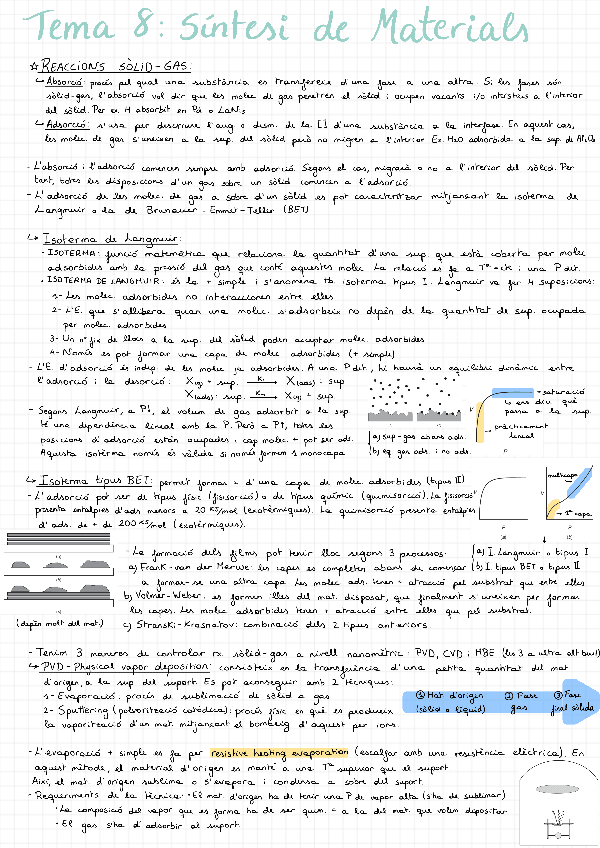 Tema 8: Síntesi de Materials
☆ REACCIONS SÒLID-GAS:
↳ Absorció: procés pel qual una substància es transfereix d'una fase a una altra. Si les fases són
sòlid-gas, l'absorció vol dir que les molec de gas penetren el sòlid i ocupen vacants i/o intersticis a l'interior
del sòlid. Per ex. H absorbit en Pd o LaNi5
↳ Adsorció: s'usa per descriure l'aug o dism. de la [] d'una substància a la interfase. En aquest cas,
les molec de gas s'uneixen a la sup. del sòlid però no migren a l'interior Ex. H2O adsorbida a la sup de Al2O3
- L'absorció i l'adsorció comencen sempre amb adsorció. Segons el cas, migrarà o no a l'interior del sòlid. Per
tant, totes les disposicions d'un gas sobre un sòlid comencen a l'adsorció
- L'adsorció de les molec. de gas a sobre d'un sòlid es pot caracteritzar mitjançant la isoterma de
Langmuir o la de Brunauer-Emmet-Teller (BET)
↳ Isoterma de Langmuir:
· ISOTERMA: funció matemàtica que relaciona la quantitat d'una sup. que està coberta per molec
adsorbides amb la pressió del gas que conté aquestes molec La relació es fa a Tª=ctt i una P dit.
· ISOTERMA DE LANGMUIR: és la + simple i s'anomena tb isoterma tipus I. Langmuir va fer 4 suposicions:
1- Les molec. adsorbides no interaccionen entre elles
2- L'E. que s'allibera quan una molec. s'adsorbeix no depèn de la quantitat de sup. ocupada
per molec adsorbides
3- Un nº fix de llocs a la sup. del sòlid poden acceptar molec. adsorbides
4- Només es pot formar una capa de molec adsorbides (+ simple)
- L'E. d'adsorció és indep. de les molec ja adsorbides. A una P dit, hi haurà un equilibri dinàmic entre
l'adsorció i la desorció: X(g) + sup. → X(ads) - sup
X(ads) - sup. → X(g) + sup
- Segons Langmuir, a P↓, el volum de gas adsorbit a la sup.
té una dependència lineal amb la P. Però a P↑, totes les
posicions d'adsorció estan ocupades i cap molec. + pot ser ads.
Aquesta isoterma només és vàlida si només formem 1 monocapa
a) sup-gas abans ads.
b) eq gas ads. i no ads.
→ saturació
↳ ens diu què
passa a la sup.
→ pràcticament
lineal
↳ Isoterma tipus BET: permet formar + d'una capa de molec. adsorbides (tipus II)
- L'adsorció pot ser de tipus físic (fisisorció) o de tipus químic (quimisorció). La fisisorció
presenta entalpies d'ads menors a 20 KJ/mol (exotèrmiques). La quimisorció presenta entalpies
d'ads. de + de 200 KJ/mol (exotèrmiques).
multicapa
→ 1ª capa
(a)
(b)
a) I. Langmuir o tipus I
b) I. tipus BET o tipus II
- La formació dels films pot tenir lloc segons 3 processos:
a) Frank-van der Merwe: les capes es completen abans de començar
a formar-se una altra capa Les molec ads. tenen + atracció pel substrat que entre elles
b) Volmer-Weber: es formen illes del mat. disposat, que finalment s'uneixen per formar
les capes. Les molec adsorbides tenen + atracció entre elles que pel substrat.
c) Stranski-Krasnatov: combinació dels 2 tipus anteriors
(depèn molt del mat.)
- Tenim 3 maneres de controlar rx. sòlid-gas a nivell nanomètric: PVD, CVD i MBE (les 3 a ultra alt buid)
↳ PVD-Physical vapor deposition: consisteix en la transferència d'una petita quantitat del mat
d'origen, a la sup del suport. Es pot aconseguir amb 2 tècniques:
1- Evaporació: procés de sublimació de sòlid a gas
2- Sputtering (polvorització catòdica): procés físic en què es produeix
la vaporització d'un mat mitjançant el bombeig d'aquest per ions.
① Mat d'origen (sòlid o líquid)
② Fase gas
③ Fase final sòlida
- L'evaporació + simple es fa per resistive heating evaporation (escalfar amb una resistència elèctrica). En
aquest mètode, el material d'origen es manté a una Tª superior que el suport
Així, el mat d'origen sublima o s'evapora i condensa a sobre del suport.
- Requeriments de la tècnica: · El mat d'origen ha de tenir una P de vapor alta (s'ha de sublimar)
· La composició del vapor que es forma ha de ser quím. = a la del mat. que volem dipositar
· El gas s'ha d'adsorbir al suport.